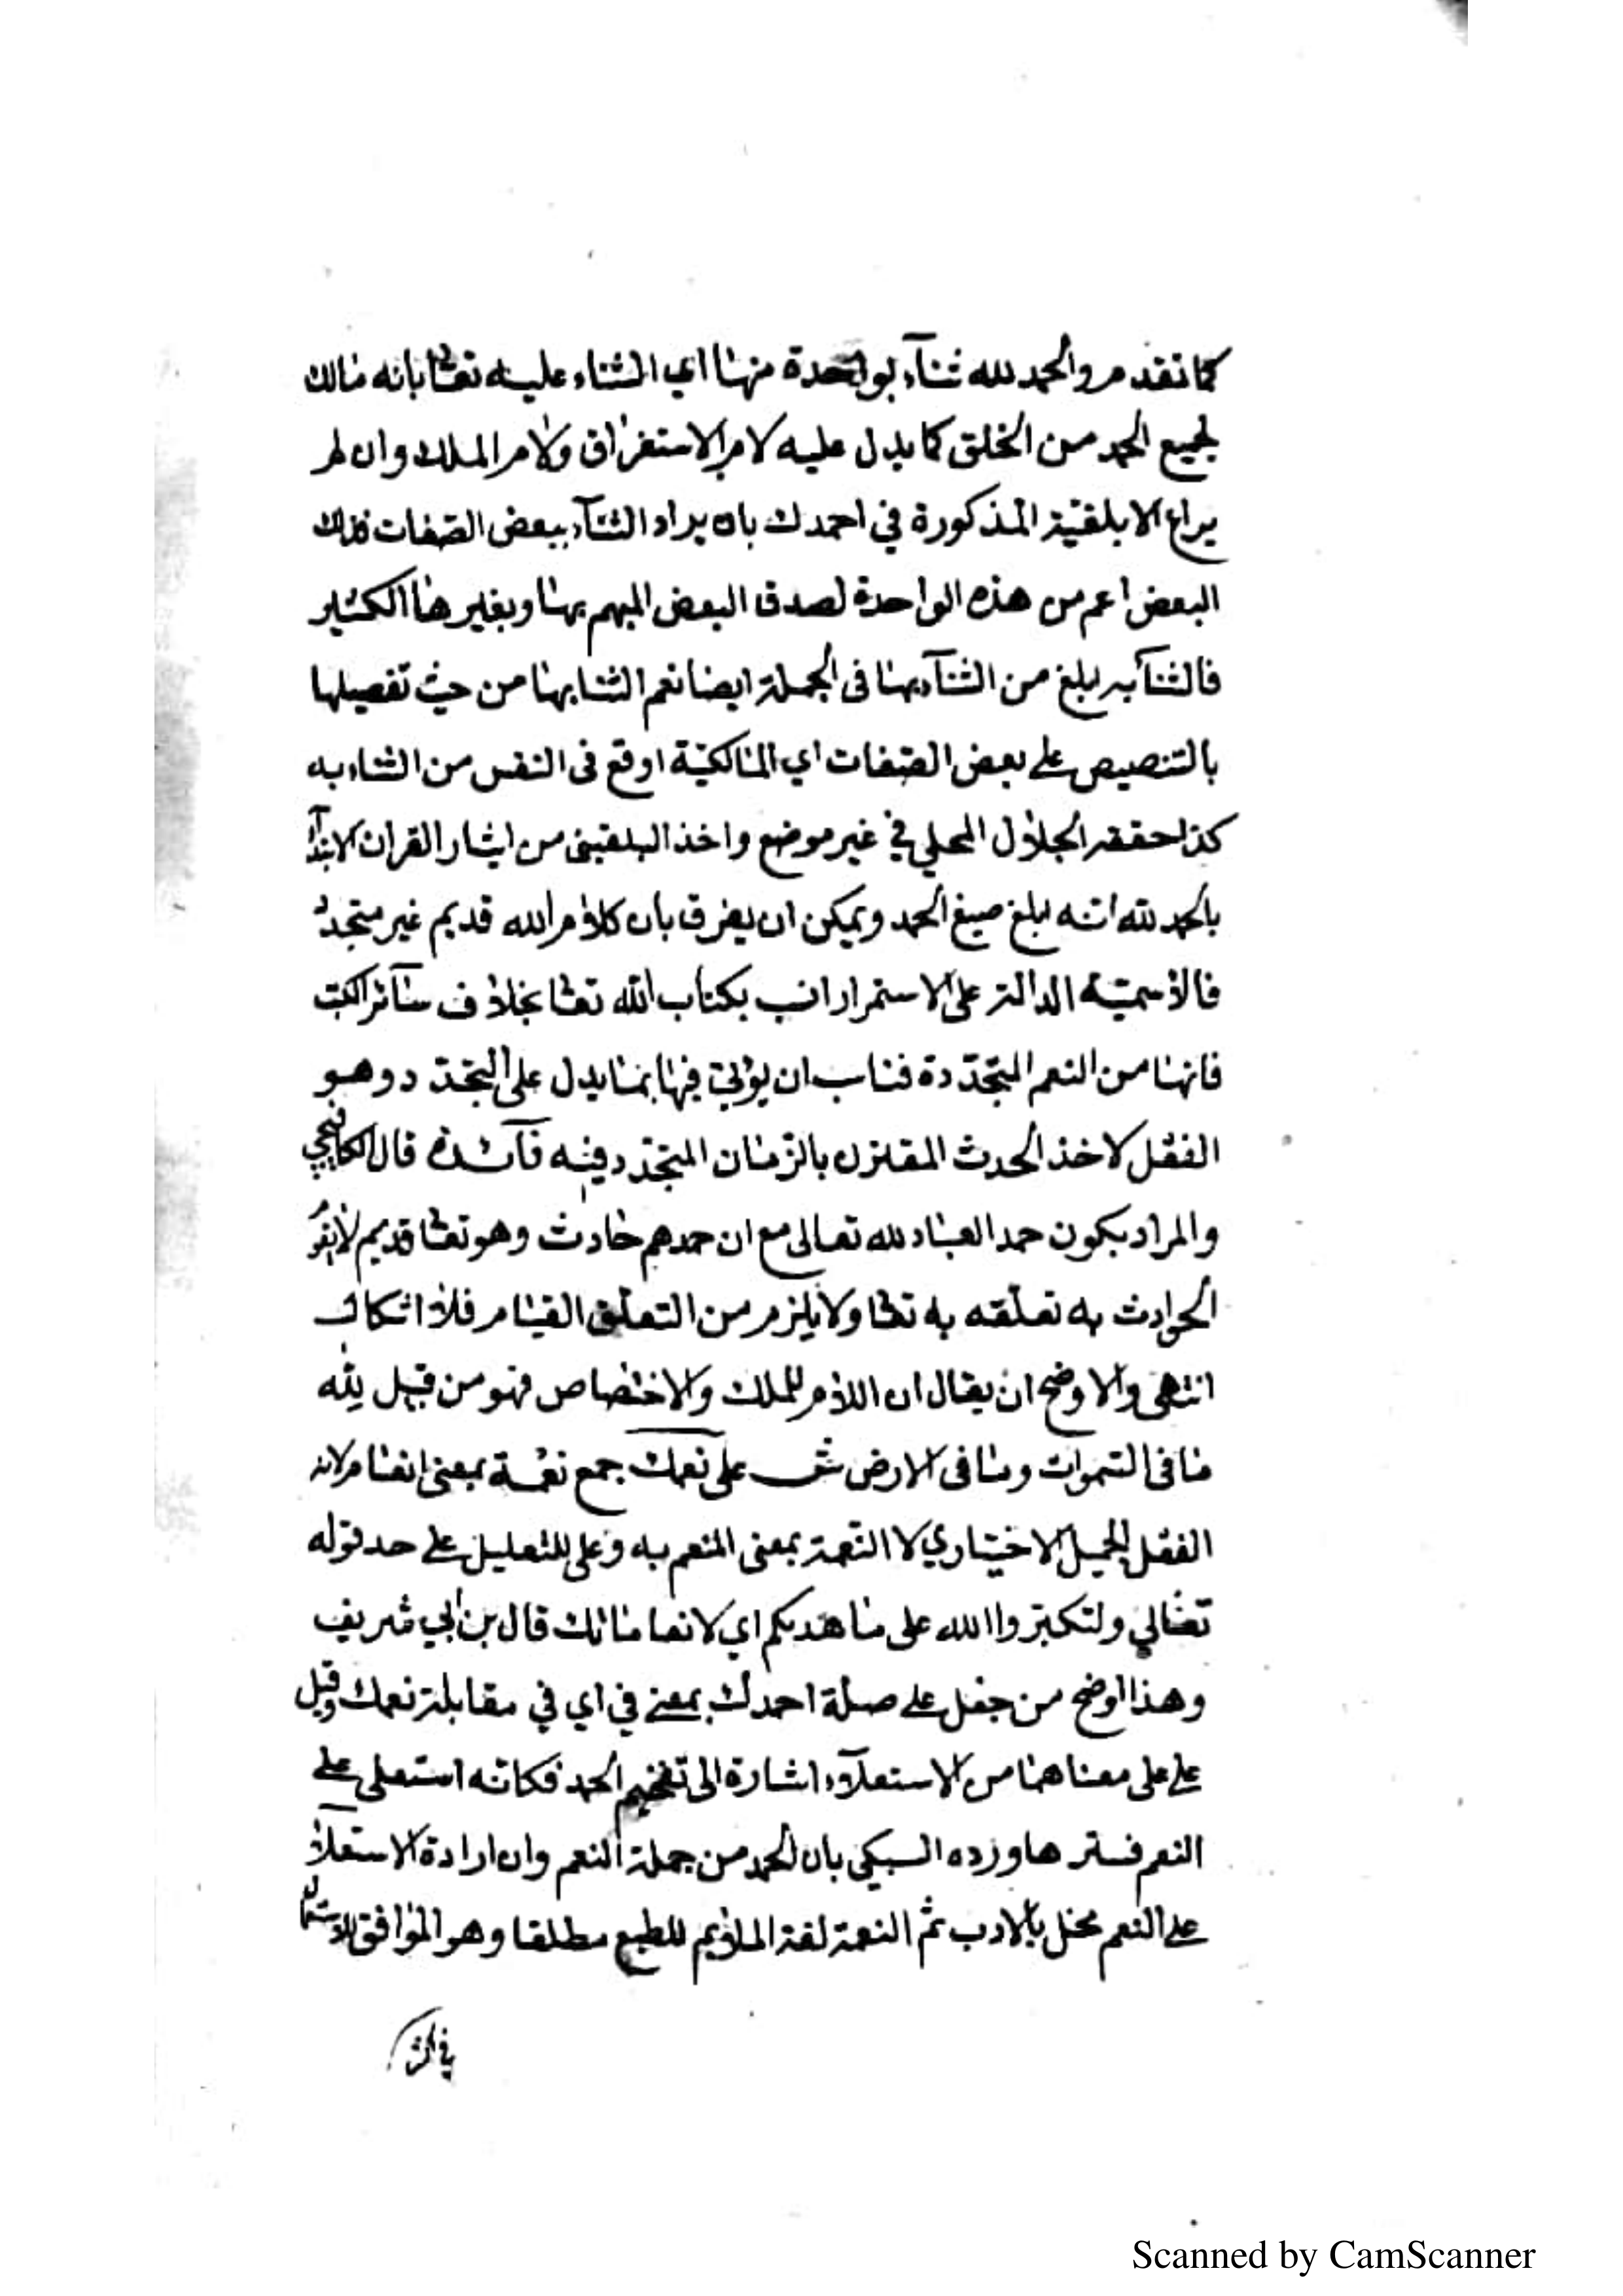 كما تقدم والحمد لله ثنآء بواحدة منها اي الثناء عليه تعا بانه مالك
لجميع الحمد من الخلق كما يدل عليه لام الاستغراق ولام الملك وان لم
يراع الابلغية المذكورة في احمدك بان يراد الثنآء ببعض الصفات فذلك
البعض اعم من هذه الواحدة لصدق البعض المبهم بها وبغيرها الكثير
فالثنآ به ابلغ من الثنآء بها فى الجملة ايضا نعم الثنا بها من حيث تفصيلها
بالتنصيص على بعض الصفات اي المالكية اوقع فى النفس من الثناء به
كذا حققه الجلال المحلي في غير موضع واخذ البلقيني من ايثار القران الابتدآ
بالحمد لله انه ابلغ صيغ الحمد ويمكن ان يفرق بان كلام الله قديم غير متجدد
فالاسمية الدالة على الاستمرار انسب بكتاب الله تعا بخلاف سآئر الكتب
فانها من النعم المتجددة فناسب ان يؤتي فيها بما يدل على التجدد وهو
الفعل لاخذ الحدث المقترن بالزمان المتجدد فيه فآئدة قال الكافيجي
والمراد بكون حمد العباد لله تعالى مع ان حمدهم حادث وهو تعا قديم لا يقوم
الحوادث به تعلقه به تعا ولا يلزم من التعلق القيام فلا اشكال
انتهى والاوضح ان يقال ان اللام للملك والاختصاص فهو من قبيل لله
ما فى السموات وما فى الارض ش على نعمك جمع نعمة بمعنى انعام لانه
الفعل الجميل الاختياري لا النعمة بمعنى المنعم به وعلى للتعليل على حد قوله
تعالي ولتكبروا الله على ما هديكم اي لانعاماتك قال بن ابي شريف
وهذا اوضح من جعل على صلة احمدك بمعنى في اي في مقابلة نعمك وقيل
على على معناها من الاستعلآء اشارة الى تفخيم الحمد فكانه استعلى على
النعم فسترها ورده السبكى بان الحمد من جملة النعم وان ارادة الاستعلآ
على النعم مخل بالادب ثم النعمة لغة الملايم للطبع مطلقا وهو الموافق للاستعمال
في
Scanned by CamScanner